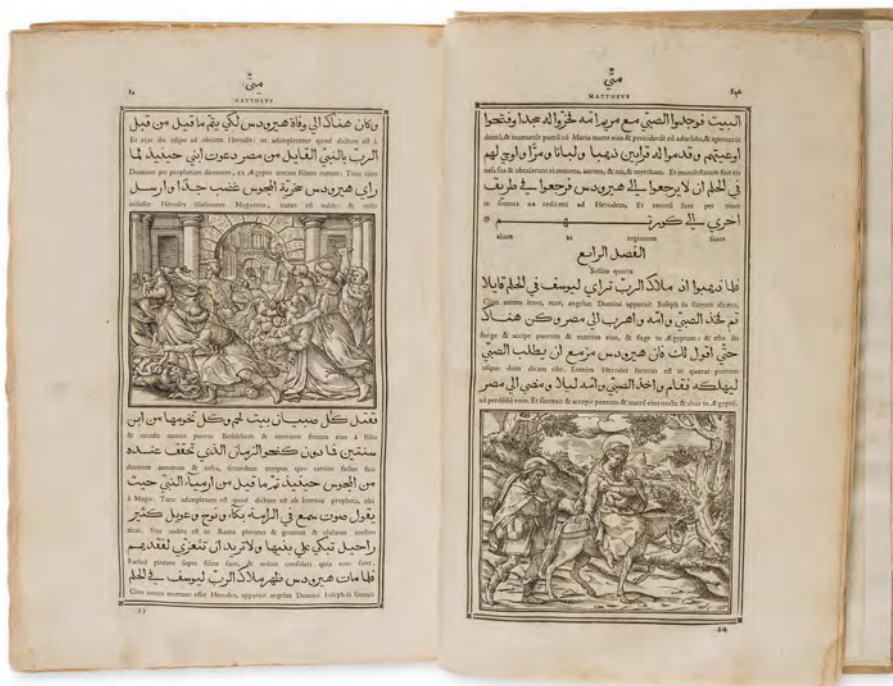 متّي
MATTHEVS
البيت فوجدوا الصبيّ مع مريم امّه فخرّوا له سجدا وفتحوا
domũ, & inuenerũt puerũ cũ Maria matre eius & prociderũt eũ adorãdo, & aperuerũt
اوعيتهم وقدموا له قرابين ذهبا ولبانا ومرّا واوحي لهم
& obtulerunt ei munera, aurum, & tus, & myrrham. Et manifestatum fuit eis
في الحلم ان لا يرجعوا الي هيرودس فرجعوا في طريق
in somnis ne redirent ad Herodem, Et reuersi sunt per viam
اخري الي كورتهم
aliam in regionem suam
الفصل الرابع
Sessio quarta
فلما ذهبوا اذ ملاك الربّ تراي ليوسف في الحلم قايلا
Cùm autem irent, ecce, angelus Domini apparuit Ioseph in somnis dicens,
قم فخذ الصبيّ وامّه واهرب الي مصر وكن هناك
Surge & accipe puerum & matrem eius, & fuge in Ægyptum: & esto ibi
حتّي اقول لك فان هيرودس مزمع ان يطلب الصبي
usque dum dicam tibi. Etenim Herodes futurus est ut quærat puerum
ليهلكه فقام واخذ الصبيّ وامّه ليلا ومضي الي مصر
ad perdendũ eum. Et surrexit & accepit puerum & matrẽ eius nocte & abijt in Ægyptũ.
24
متّي
MATTHEVS
وكان هناك الي وفاة هيرودس لكي يتم ما قيل من قبل
Et erat ibi usque ad obitum Herodis: ut adimpleretur quod dictum est à
الربّ بالنبيّ القايل من مصر دعوت ابني حينيذ لما
Domino per prophetam dicentem, ex Ægypto uocaui filium meum: Tunc cùm
راي هيرودس سخريّة المجوس غضب جدّا وارسل
uidisset Herodes illusionem Magorum, iratus est ualde: & misit
فقتل كل صبيان بيت لحم وكل تخومها من ابن
& occidit omnes pueros Bethlehem & omnium finium eius à filio
سنتين فا دون كنحو الزمان الذي تحقق عنده
duorum annorum & infra, secundum tempus quo certior factus fuit
من المجوس حينيذ تم ما قيل من ارمياء النبيّ حيث
à Magis. Tunc adimpletum est quod dictum est ab Ieremia propheta, ubi
يقول صوت سمع في الرامة بكاء ونوح وعويل كثير
dicit. Vox audita est in Rama ploratus & gemitus & ululatus multus
راحيل تبكي علي بنيها ولا تريد ان تتعزي لفقديهم
Rachel plorans super filios suos, & noluit consolari quia non sunt.
فلما مات هيرودس ظهر ملاك الربّ ليوسف في الحلم
Cùm autem mortuus esset Herodes, apparuit angelus Domini Ioseph in somnis
23